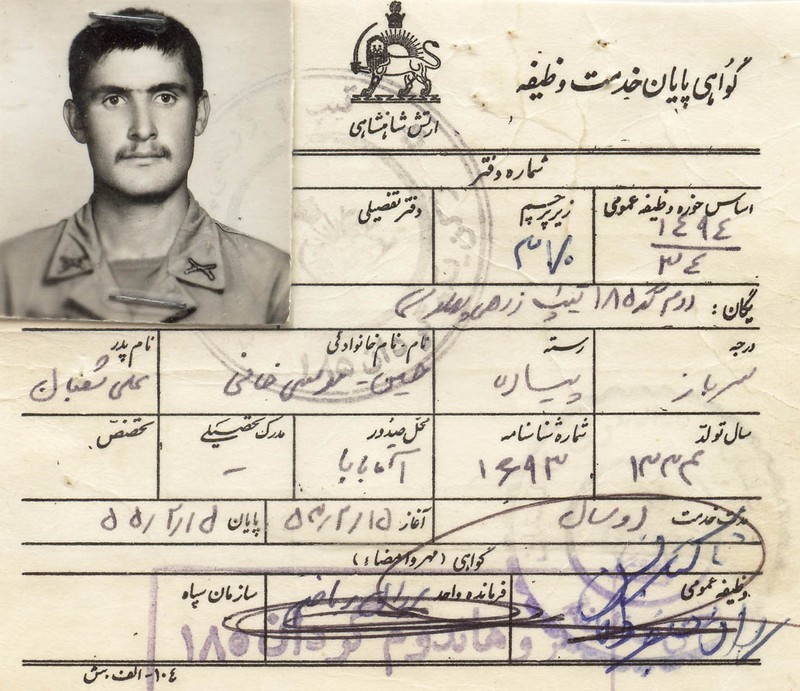 گواهی پایان خدمت وظیفه
ارتش شاهنشاهی
شماره دفتر
اساس حوزه وظیفه عمومی
۱۴۹۴
۳۴
زیر پرچم
۳۷۰
دفتر تفصیلی
یگان: دوم گد ۱۸۵ تیپ زرهی
درجه
سرباز
رسته
پیاده
نام - نام خانوادگی
حسین - موسی خانی
نام پدر
علی شعبان
سال تولد
۱۳۳۴
شماره شناسنامه
۱۶۹۳
محل صدور
آقابابا
مدرک تحصیلی
-
تخصص
مدت خدمت دو سال
آغاز ۵۳/۲/۱۵
پایان ۵۵/۲/۱۵
گواهی (مهر و امضاء)
وظیفه عمومی
فرمانده واحد
سازمان سپاه
گروهان دوم گردان ۱۸۵
۱۰۴- الف.ش